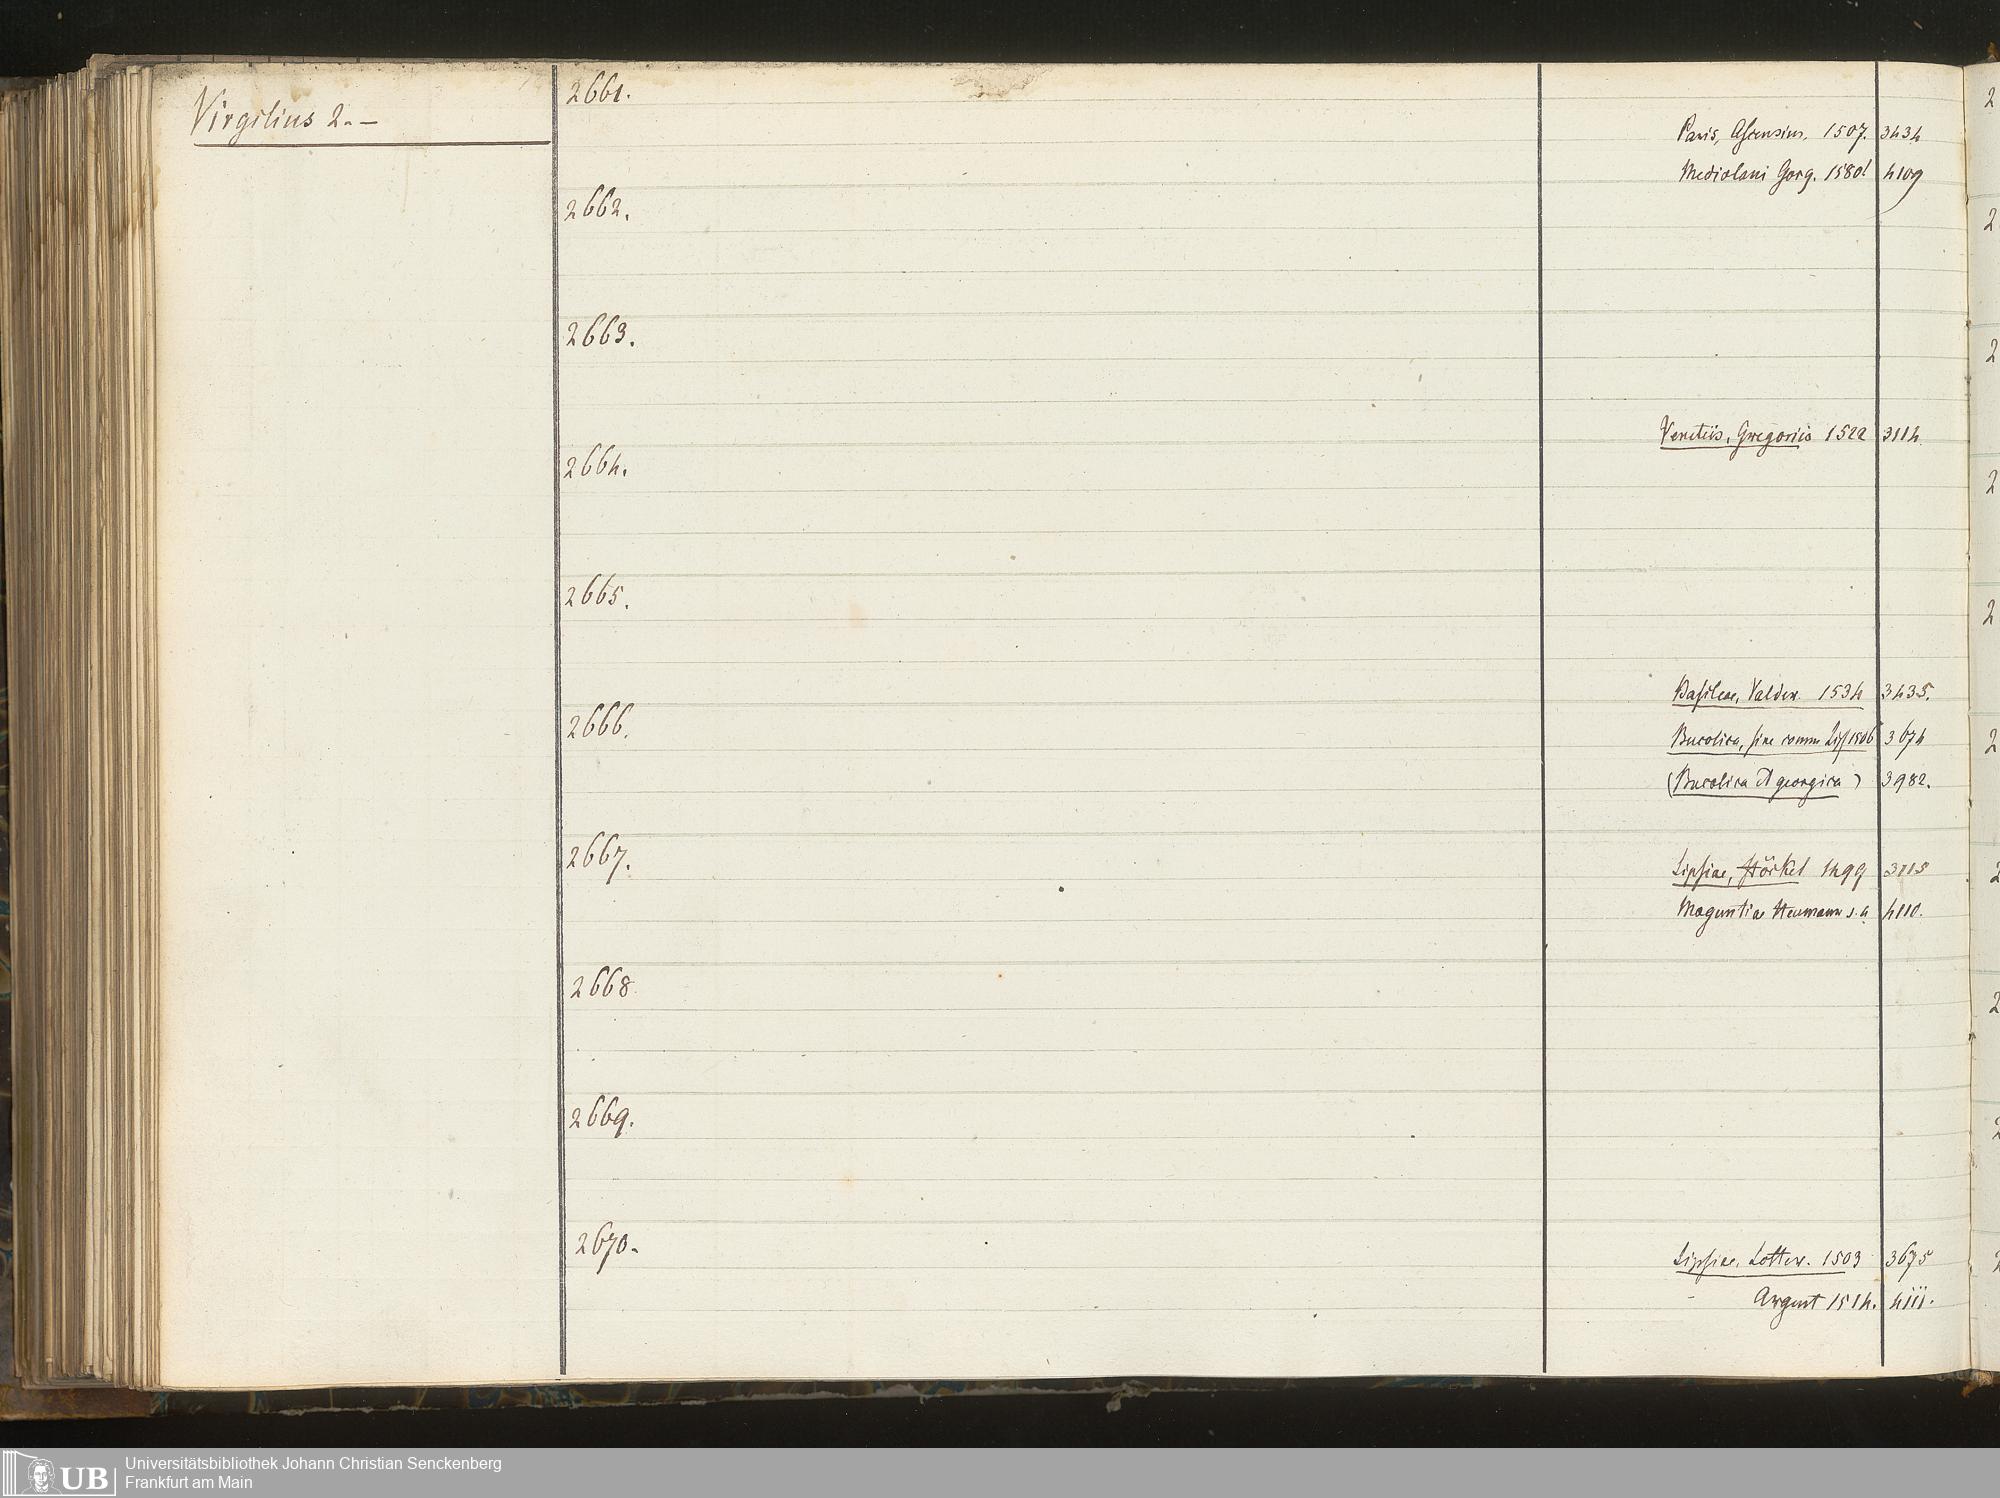 Virgilius 2.-
2661.
Paris, Ascensius. 1507. 3434
Mediolani Gorg. 1580! 4109
2662.
2663.
Venetiis, Gregoriis 1522 3114.
2664.
2665.
Basileae, Valder. 1534 3435.
2666.
Bucolica, sine comm Lips 1506 3674
(Bucolica et georgica) 3982.
2667.
Lipsiae, Höckel 1499 3715
Maguntiae Heumann s.a. 4110.
2668.
2669.
2670.
Lipsiae, Lotter. 1503 3675
Argent 1514. 4111.
2
2
2
2
2
2
2
2
2
2
UB
Universitätsbibliothek Johann Christian Senckenberg
Frankfurt am Main